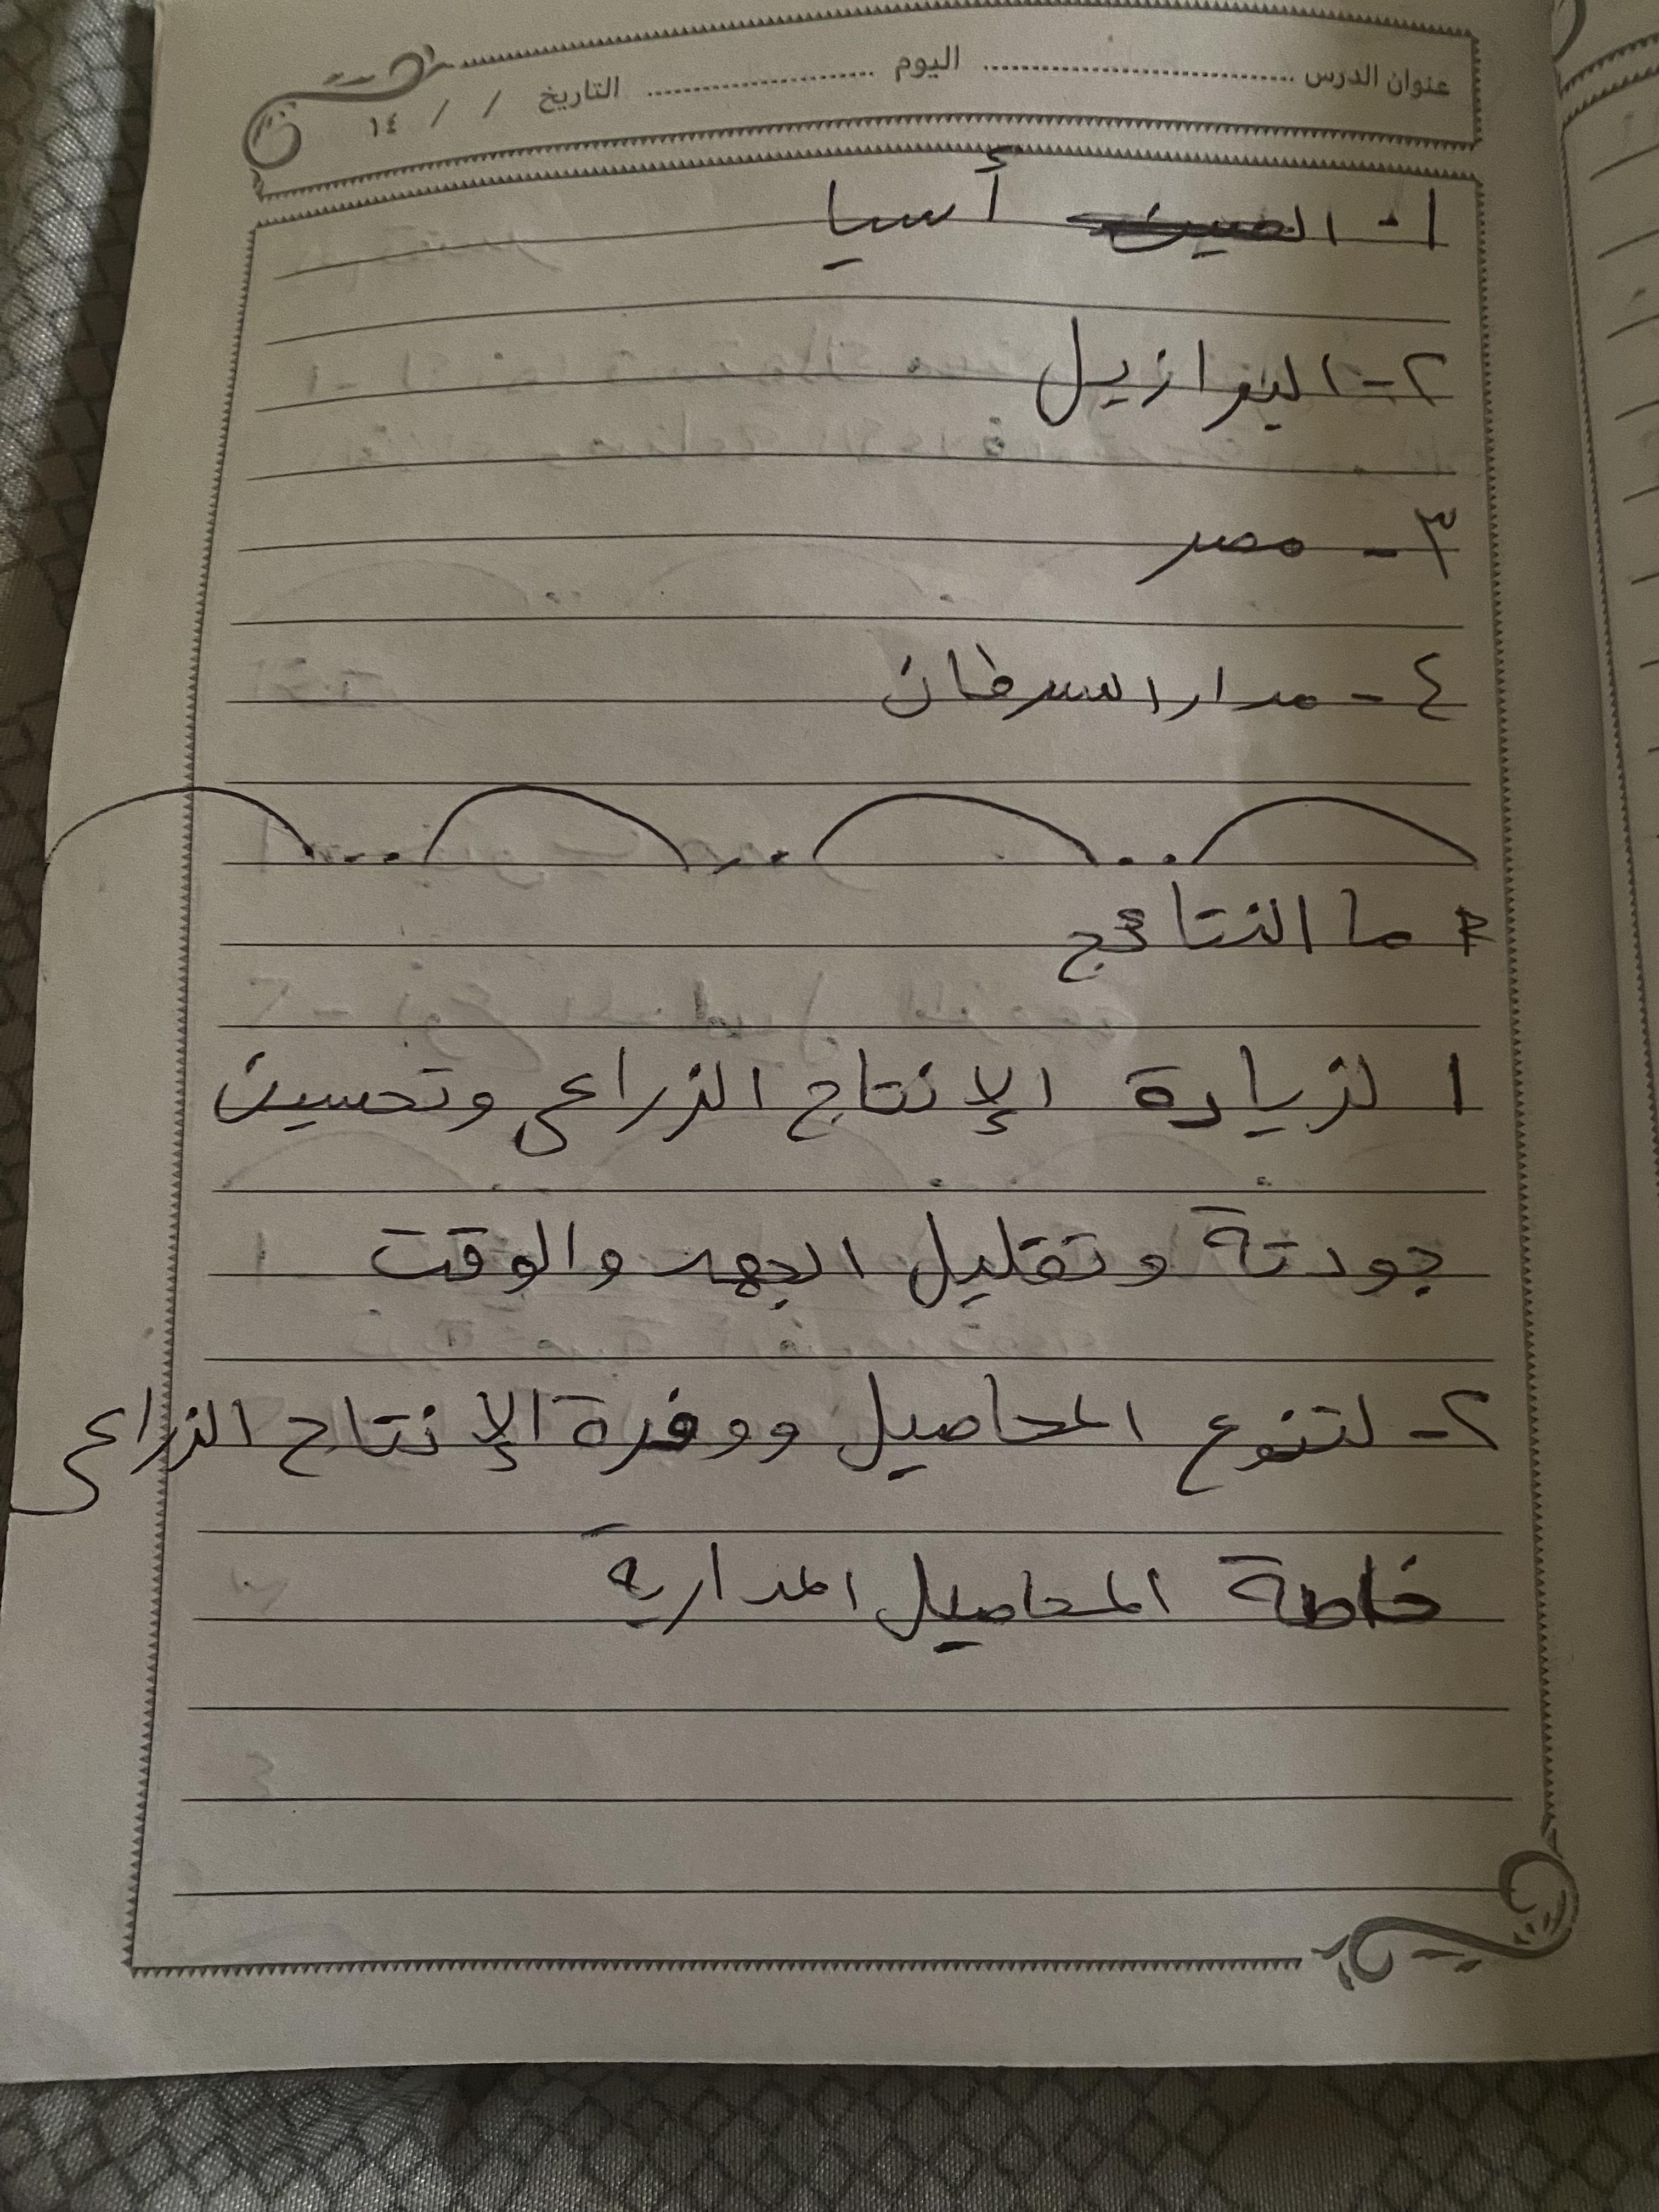 عنوان الدرس ........................ اليوم ................ التاريخ / / ١٤
١- الصين أسيا
٢- البرازيل
٣- مصر
٤- مدار السرطان
* ما النتائج
١ لزيادة الإنتاج الزراعي وتحسين
جودتة وتقليل الجهد والوقت
٢- لتنوع المحاصيل ووفرة الإنتاج الزراعي
خاصة المحاصيل المدارية